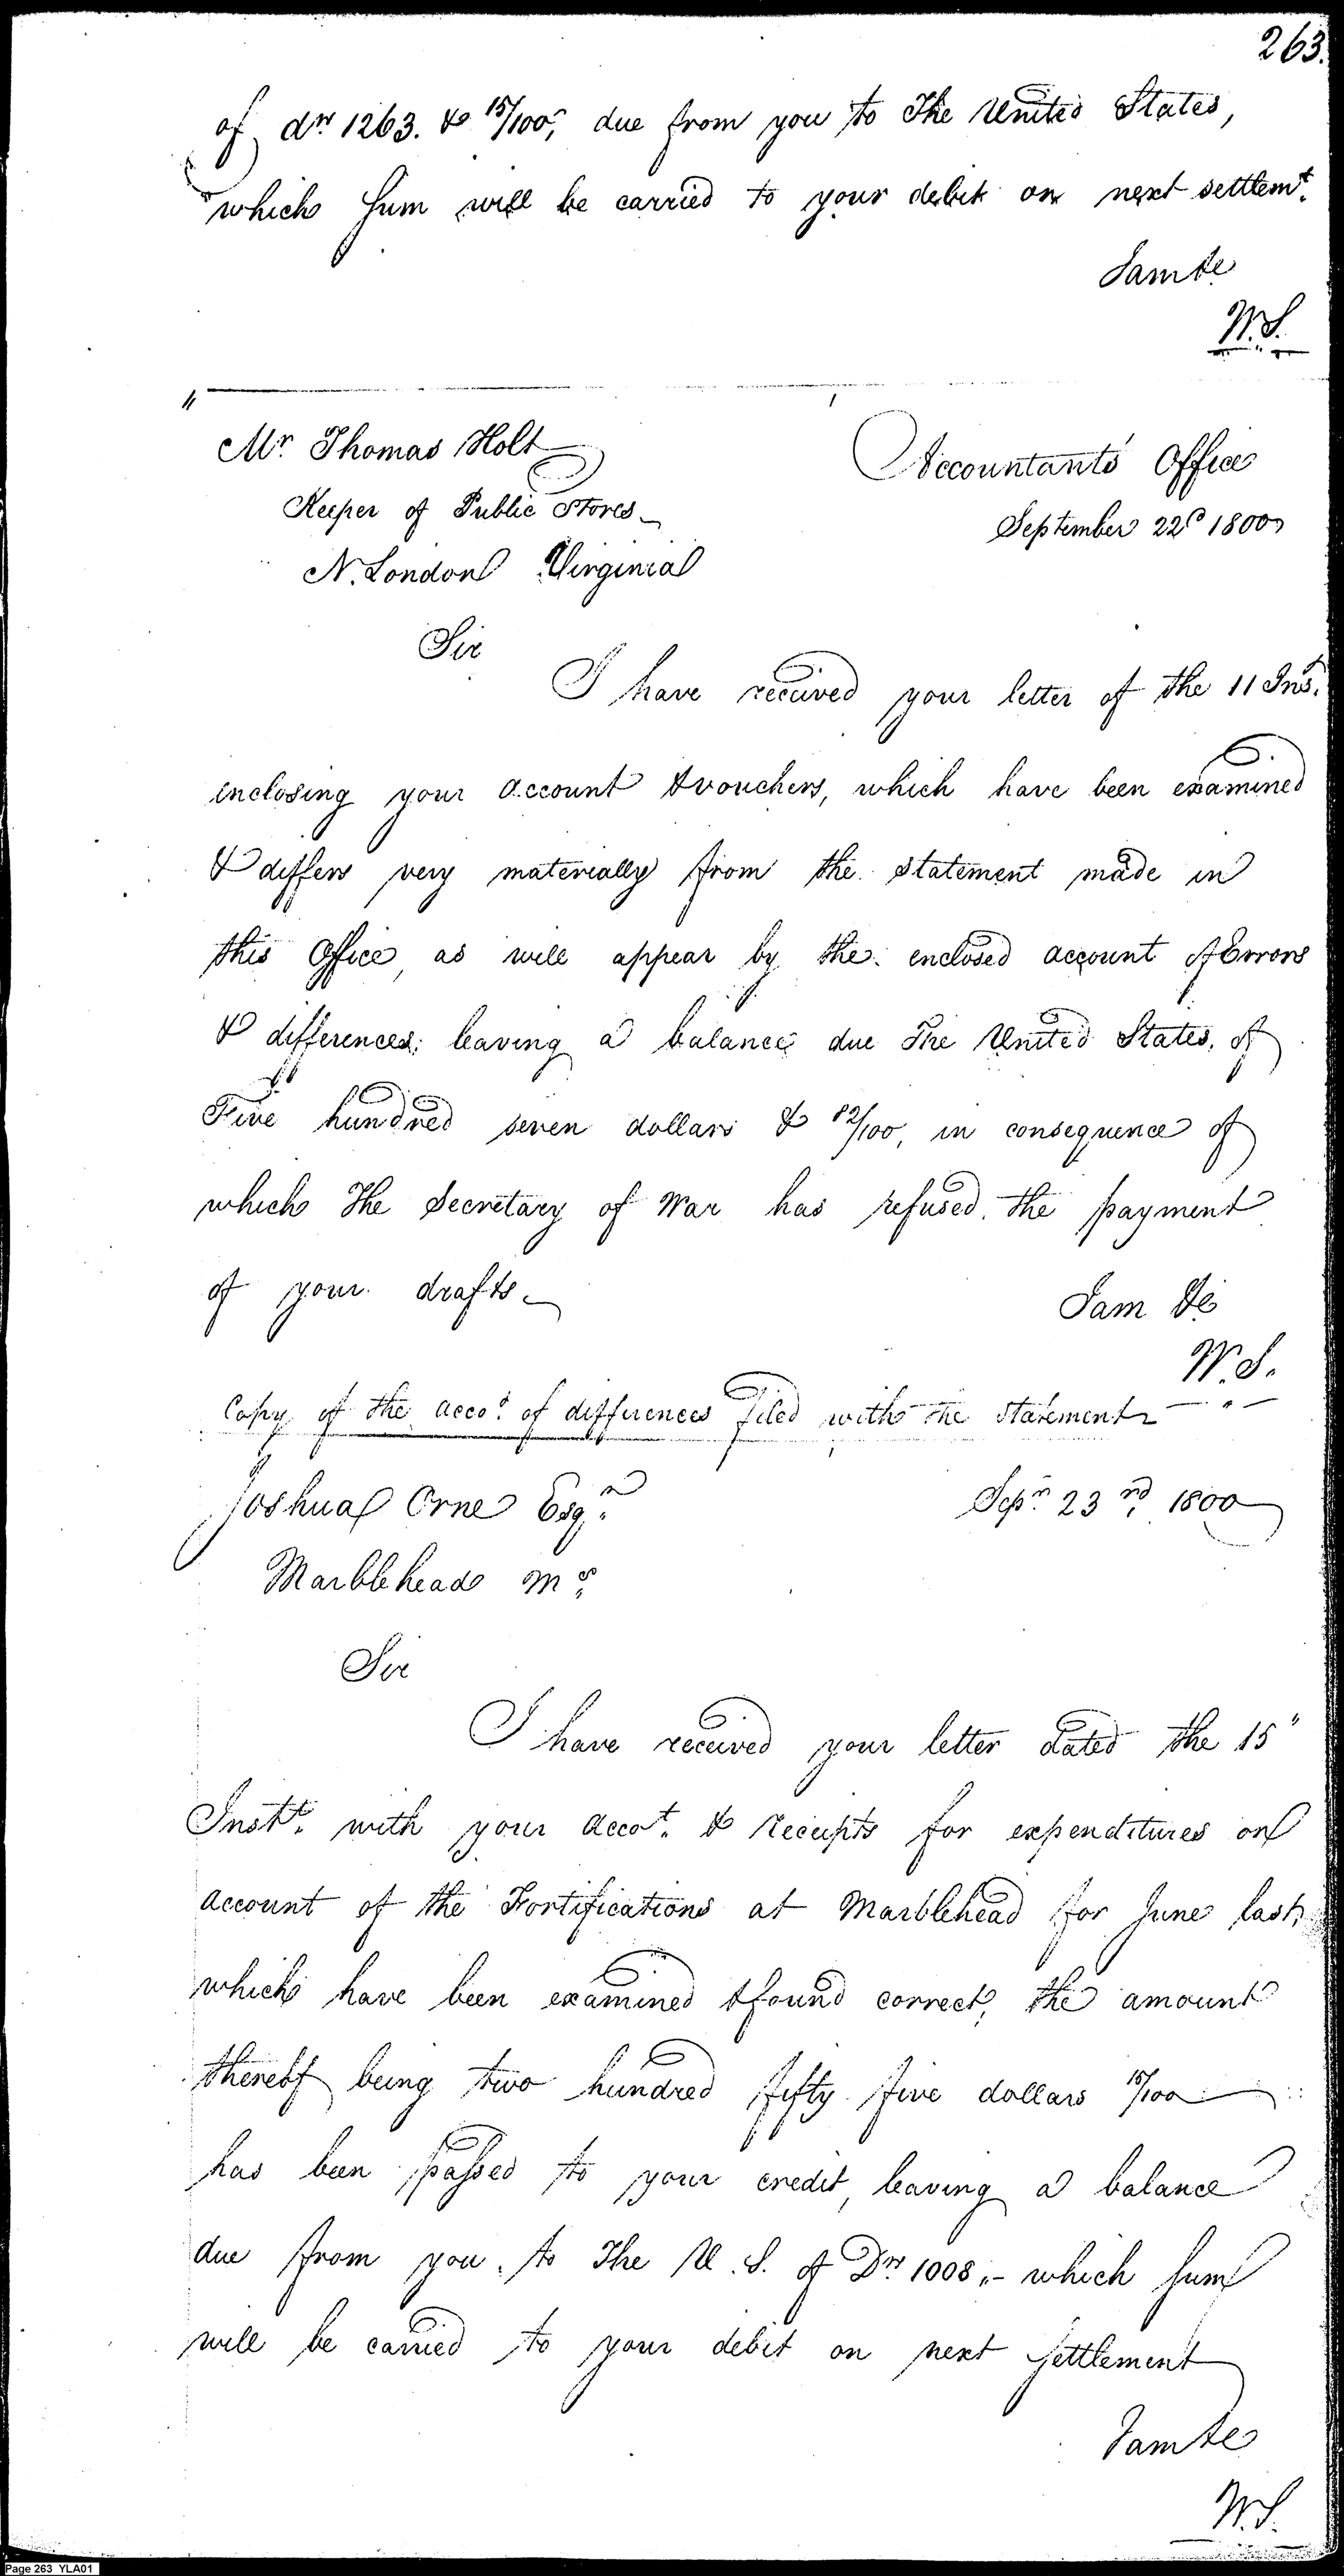 263.
of drs 1263. & 15/100, due from you to The United States,
which sum will be carried to your debit on next settlemt.
I am &c
W.S.
Mr. Thomas Holt
Accountants Office
Keeper of Public Stores
September 22d 1800
N. London Virginia
Sir
I have received your letter of the 11 Inst.
enclosing your account & vouchers, which have been examined
& differs very materially from the statement made in
this Office as will appear by the enclosed account of Errors
& differences; leaving a balance due The United States, of
Five hundred seven dollars & 82/100, in consequence of
which The Secretary of War has refused the payment
of your drafts
I am &c
W.S.
Copy of the accot. of differences filed with the statement
Joshua Orne Esqr.
Sepr. 23rd, 1800
Marblehead Ms.
Sir
I have received your letter dated the 15"
Instt. with your accot. & receipts for expenditures on
account of the Fortifications at Marblehead for June last,
which have been examined & found correct, the amount
thereof being two hundred fifty five dollars 15/100
has been passed to your credit, leaving a balance
due from you to The U.S. of Drs 1008,- which sum
will be carried to your debit on next settlement
I am &c
W.S.
Page 263 YLA01